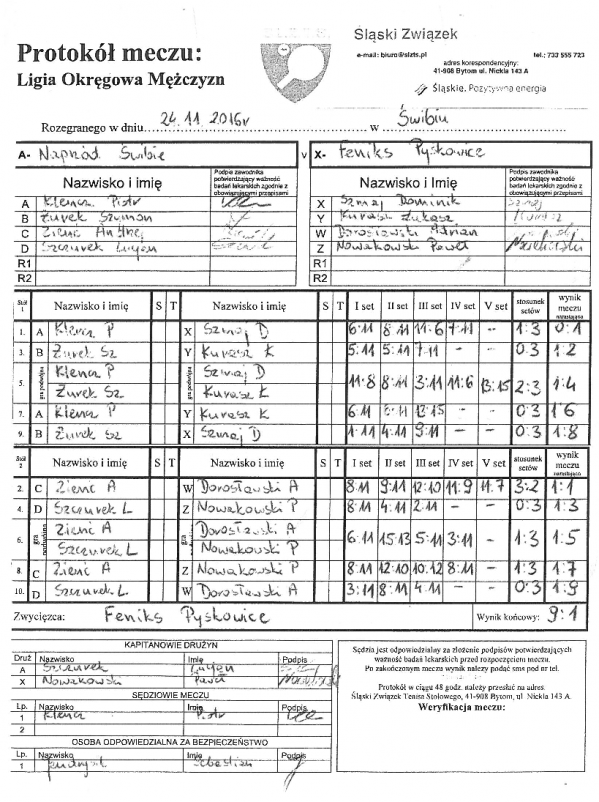 Protokół meczu:
Ligia Okręgowa Mężczyzn
Ś.L.Z.T.S.
Śląski Związek
e-mail: biuro@slzts.pl tel.: 733 555 723
adres korespondencyjny:
41-908 Bytom ul. Nickla 143 A
Śląskie. Pozytywna energia
Rozegranego w dniu 24.11.2016r w Świbiu
A- Naprzód Świbie v X- Feniks Pyskowice
Nazwisko i imię Podpis zawodnika potwierdzający ważność badań lekarskich zgodnie z obowiązującymi przepisami Nazwisko i imię Podpis zawodnika potwierdzający ważność badań lekarskich zgodnie z obowiązującymi przepisami
A Klenca Piotr X Szmaj Dominik
B Żurek Szymon Y Kurasz Łukasz
C Zienć Andrzej W Dorosławski Adrian
D Szczurek Lucjan Z Nowakowski Paweł
R1 R1
R2 R2
Stół 1 Nazwisko i imię S T Nazwisko i imię S T I set II set III set IV set V set stosunek setów wynik meczu narastająco
1. A Klenca P X Szmaj D 6:11 8:11 11:6 7:11 - 1:3 0:1
3. B Żurek Sz Y Kurasz Ł 5:11 5:11 7:11 - - 0:3 1:2
5. gra podwójna Klenca P Szmaj D 11:8 8:11 3:11 11:6 13:15 2:3 1:4
Żurek Sz Kurasz Ł
7. A Klenca P Y Kurasz Ł 6:11 13:15 - - 0:3 1:6
9. B Żurek Sz X Szmaj D 1:11 4:11 9:11 - - 0:3 1:8
Stół 2 Nazwisko i imię S T Nazwisko i imię S T I set II set III set IV set V set stosunek setów wynik meczu narastająco
2. C Zienć A W Dorosławski A 8:11 9:11 12:10 11:9 11:7 3:2 1:1
4. D Szczurek L Z Nowakowski P 8:11 4:11 2:11 - - 0:3 1:3
6. gra podwójna Zienć A Dorosławski A 6:11 15:13 5:11 3:11 - 1:3 1:5
Szczurek L Nowakowski P
8. C Zienć A Z Nowakowski P 8:11 12:10 10:12 8:11 - 1:3 1:7
10. D Szczurek L. W Dorosławski A 3:11 8:11 4:11 - - 0:3 1:9
Zwycięzca: Feniks Pyskowice Wynik końcowy: 9:1
KAPITANOWIE DRUŻYN
Druż Nazwisko Imię Podpis
A Szczurek Lucjan
X Nowakowski Paweł
SĘDZIOWIE MECZU
Lp. Nazwisko Imię Podpis
1 Klenca Piotr
2
OSOBA ODPOWIEDZIALNA ZA BEZPIECZEŃSTWO
Lp. Nazwisko Imię Podpis
1 Sebastian
Sędzia jest odpowiedzialny za złożenie podpisów potwierdzających
ważność badań lekarskich przed rozpoczęciem meczu.
Po zakończonym meczu wynik należy podać sms pod nr tel.
Protokół w ciągu 48 godz. należy przesłać na adres.
Śląski Związek Tenisa Stołowego, 41-908 Bytom, ul. Nickla 143 A.
Weryfikacja meczu: